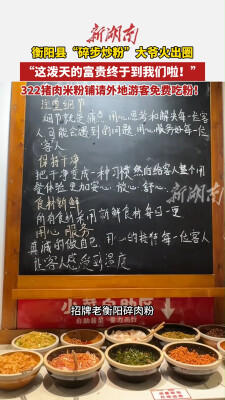 新湖南
衡阳县“碎步炒粉”大爷火出圈
“这泼天的富贵终于到我们啦！”
322猪肉米粉铺请外地游客免费吃粉！
注重细节
细节就是痛点 用心思考和解决每一位客
人可能会遇到的问题 用心服务好每一位
客人
保持干净
把干净变成一种习惯 然后给客人整个用
餐体验 更加安心、放心、舒心.
食材新鲜
所有食材采用新鲜食材 每日一更
用心服务
真诚的做自己 用一的接待每一位客人
让客人感受到温度
新湖南
小菜自助区
招牌老衡阳碎肉粉